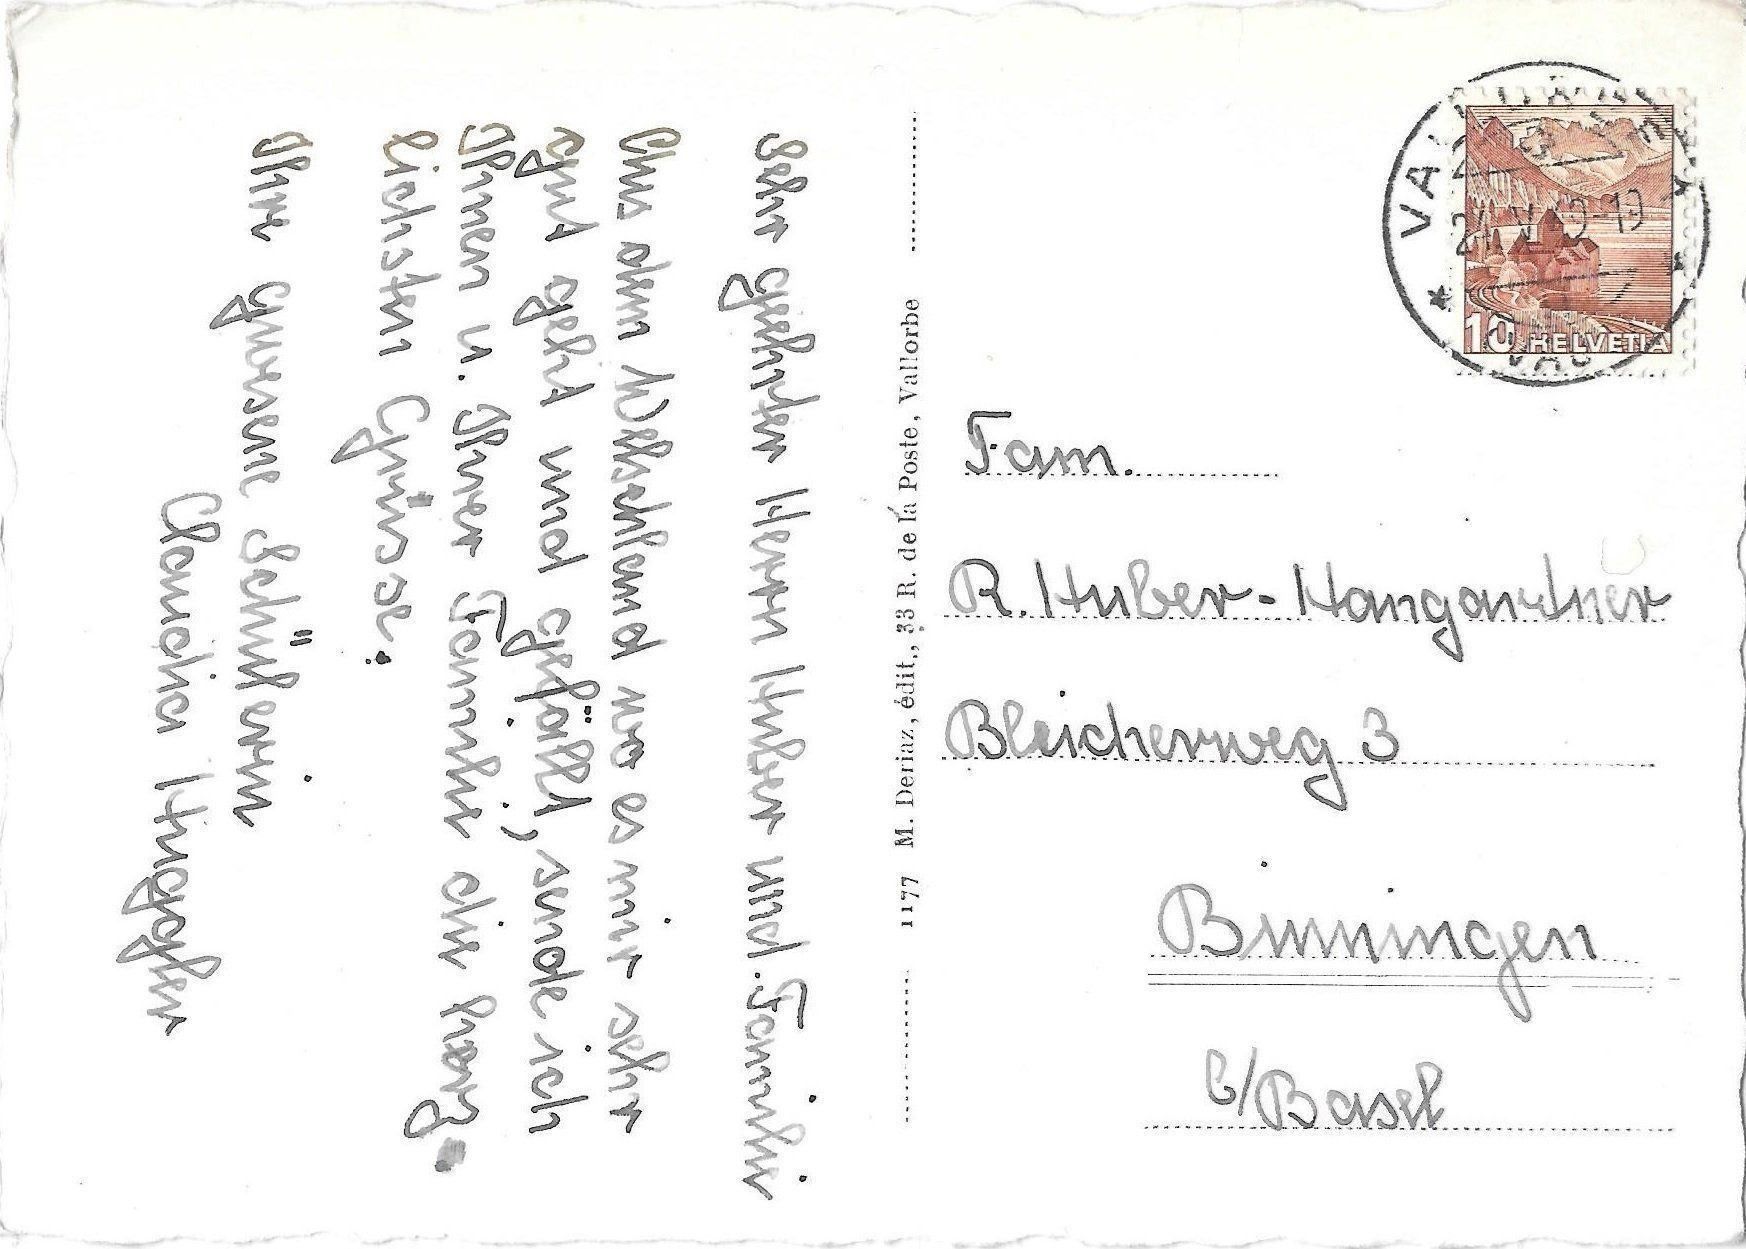 Sehr geehrter Herrn Huber und. Familie
Aus dem Welschland wo es mir sehr
gut geht und gefällt, sende ich
Ihnen u. Ihrer Familie die herz-
lichsten Grüsse.
Ihre gwesene Schülerin
Claudia Huggler
1177 M. Deriaz, édit., 33 R. de la Poste, Vallorbe
10 HELVETIA
Fam.
R. Huber-Hangartner
Bleicherweg 3
Binningen
b/Basel